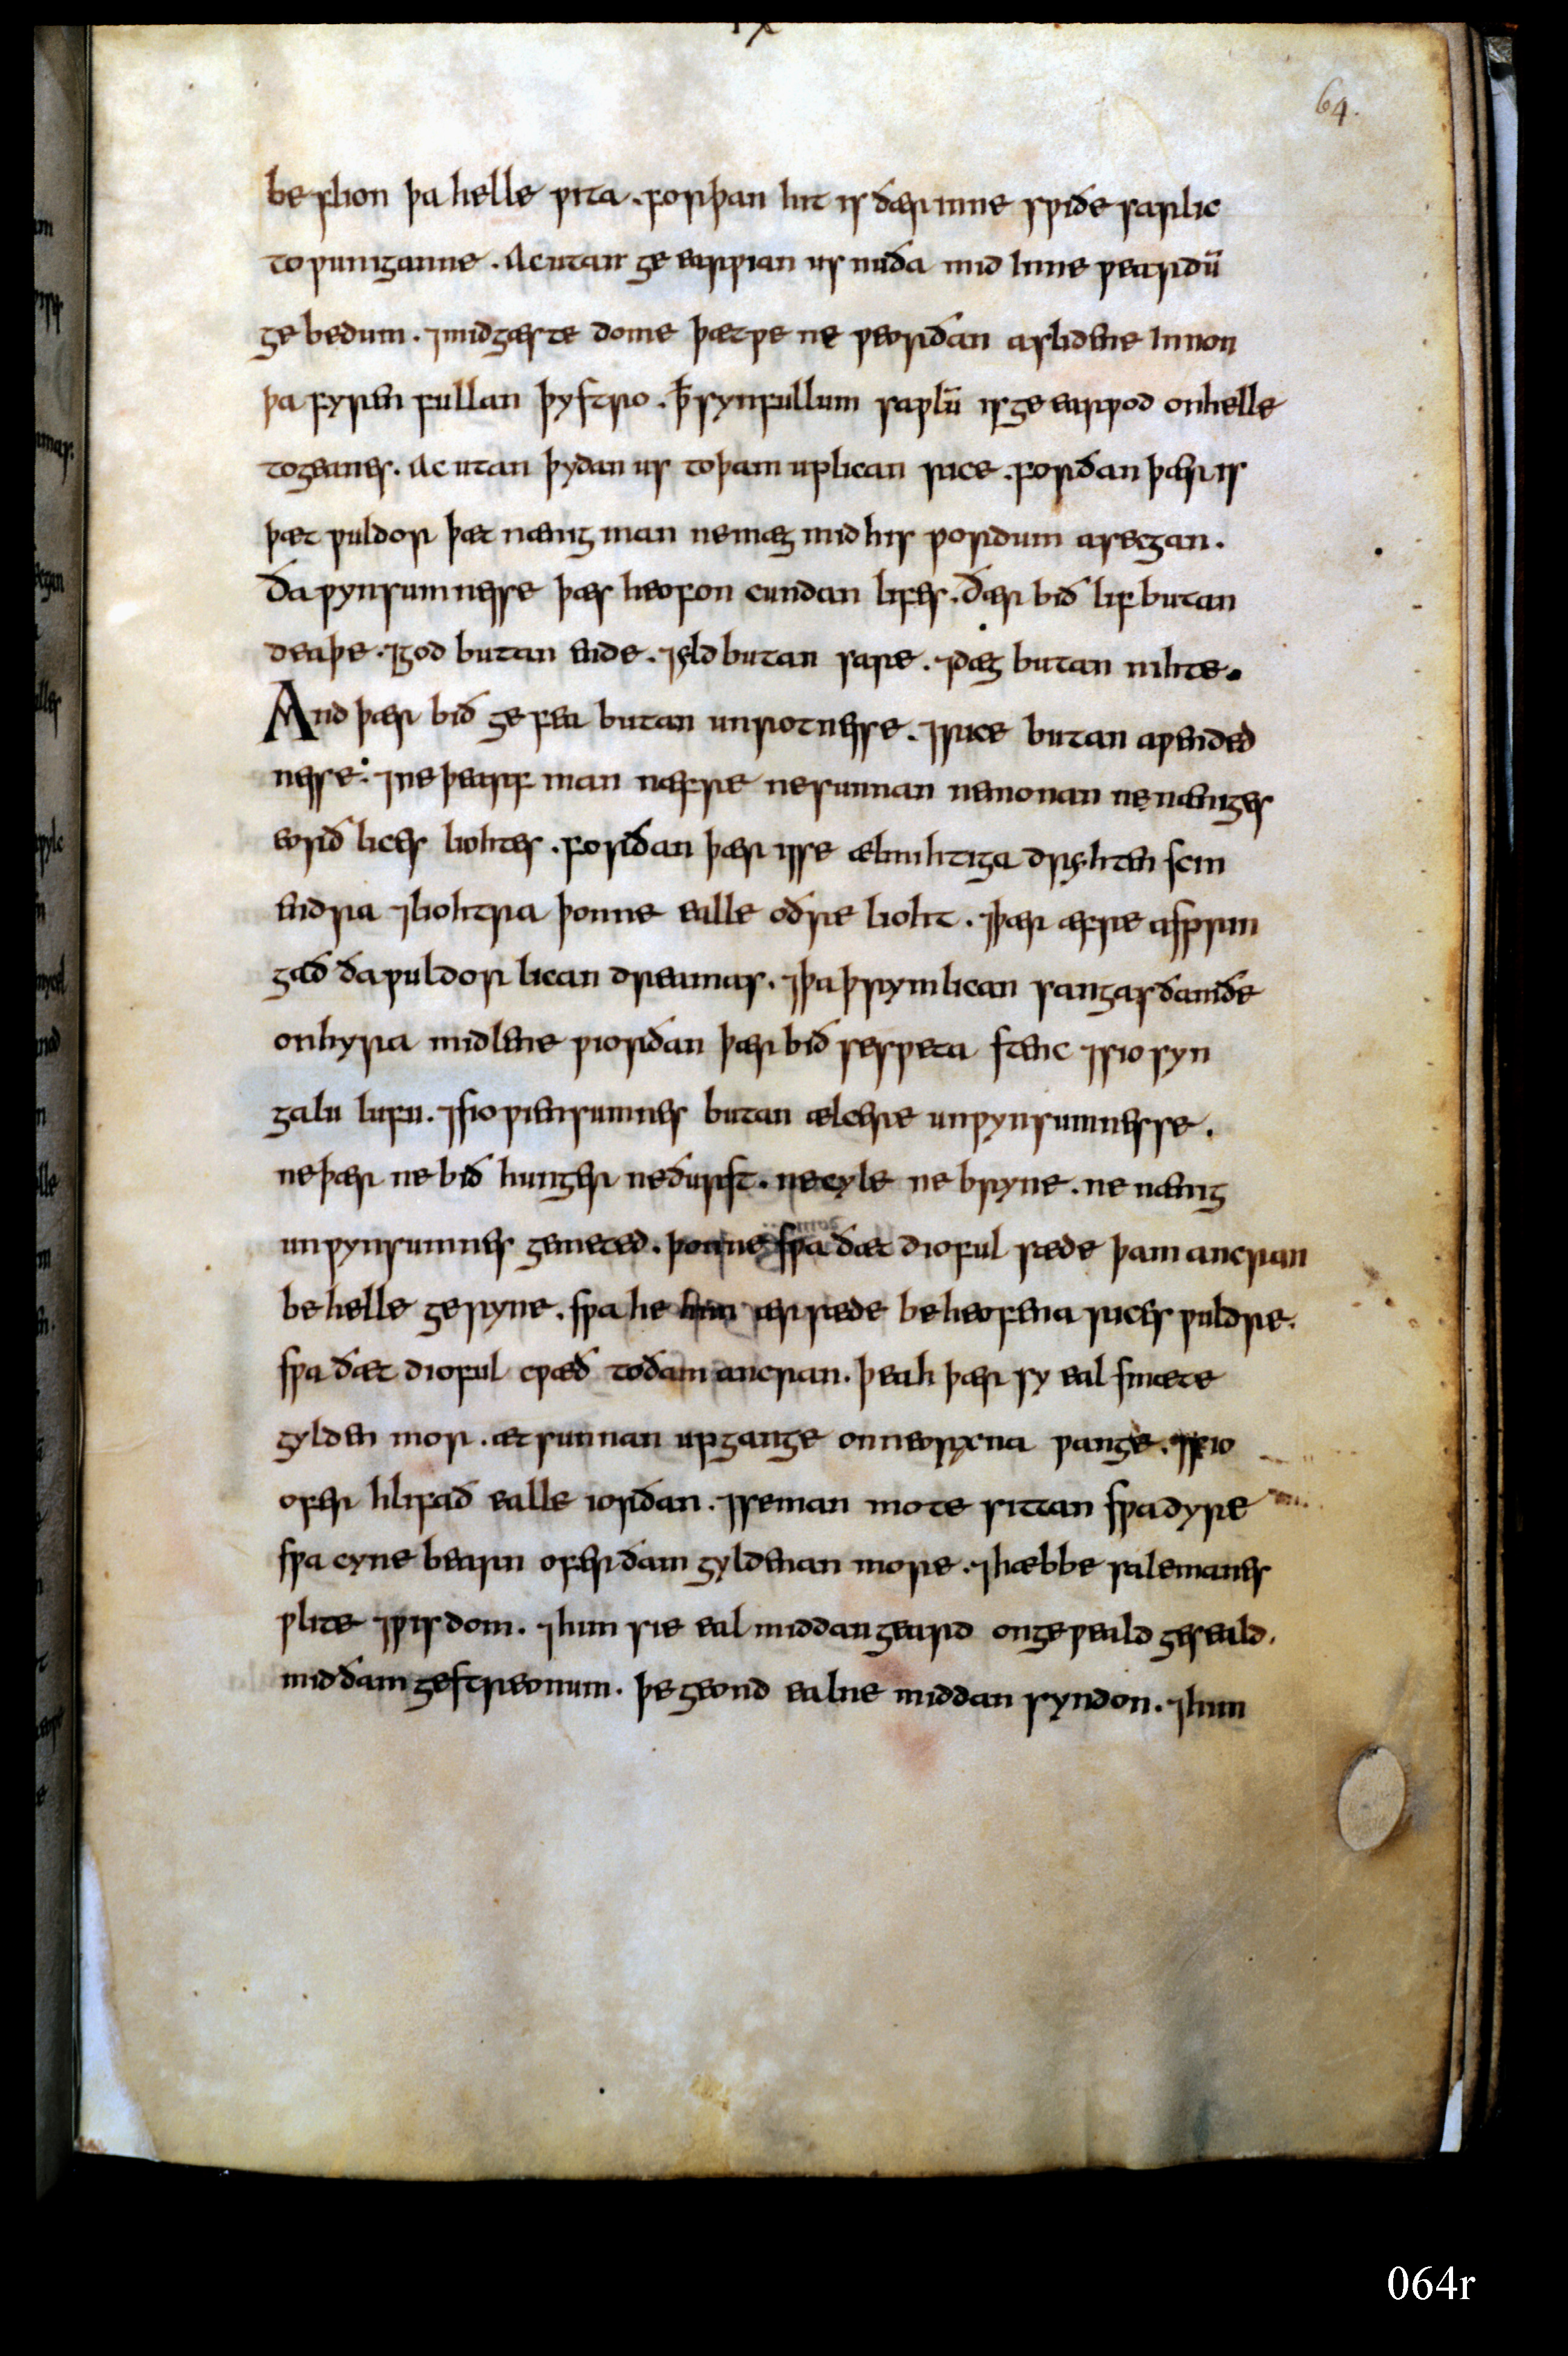 IX
64.
beflion þa helle ƿita. forþan hit is ðær inne sƿiðe sarlic
to ƿuniganne. Ac utan ge earƿian us nuða mid inne ƿeardū
ge bedum. ⁊mid gæste dome þæt ƿe ne ƿeorðan aslidene innon
þa fyren fullan þystro. ꝥ synfullum saƿlū is ge earƿod on helle
togeanes. Ac utan þydan us to þam uplican rice. forðan þær is
þæt ƿuldor þæt nænig man ne mæg mid his ƿordum asecgan.
ða ƿynsumnesse þæs heofon cundan lifes. ðær bið lif butan
deaþe. ⁊god butan ende. ⁊yld butan sare. ⁊dæg butan nihte.
And þær bið ge fea butan unrotnesse. ⁊rice butan aƿended
nesse. ⁊ne þearf man næfre ne sunnan ne monan ne næniges
eorð lices liohtes. forðan þær is se ælmihtiga dryhten scin
endra ⁊liohtra þonne ealle oðre lioht. ⁊þær æfre asprin
gað ða ƿuldor lican dreamas. ⁊þa þrymlican sangas ðam ðe
on hyra midlene ƿiorðan þær bið se sƿeta stenc ⁊sio syn
galu lufu. ⁊sio ƿiensumnes butan ælcere unƿynsumnesse.
ne þær ne bið hunger ne ðurst. ne cyle ne bryne. ne nænig
unƿynsumnes gemeted. þonne sƿa ðæt dioful sæde þam ancran
be helle geryne. sƿa he him ær sæde be heofena rices ƿuldre.
sƿa ðæt dioful cƿæð to ðam ancran. þeah þær sy eal smæte
gylden mor. æt sunnan upgange on neorxna ƿange. ⁊se io
ofer hlifað ealle iorðan. ⁊se man mote sittan sƿa dyre
sƿa cyne bearn ofer ðam gyldenan more. ⁊hæbbe salemanes
ƿlite ⁊ƿisdom. ⁊him sie eal middangeard on ge ƿeald geseald.
mid ðam gestreonum. þe geond ealne middan syndon. ⁊him
064r